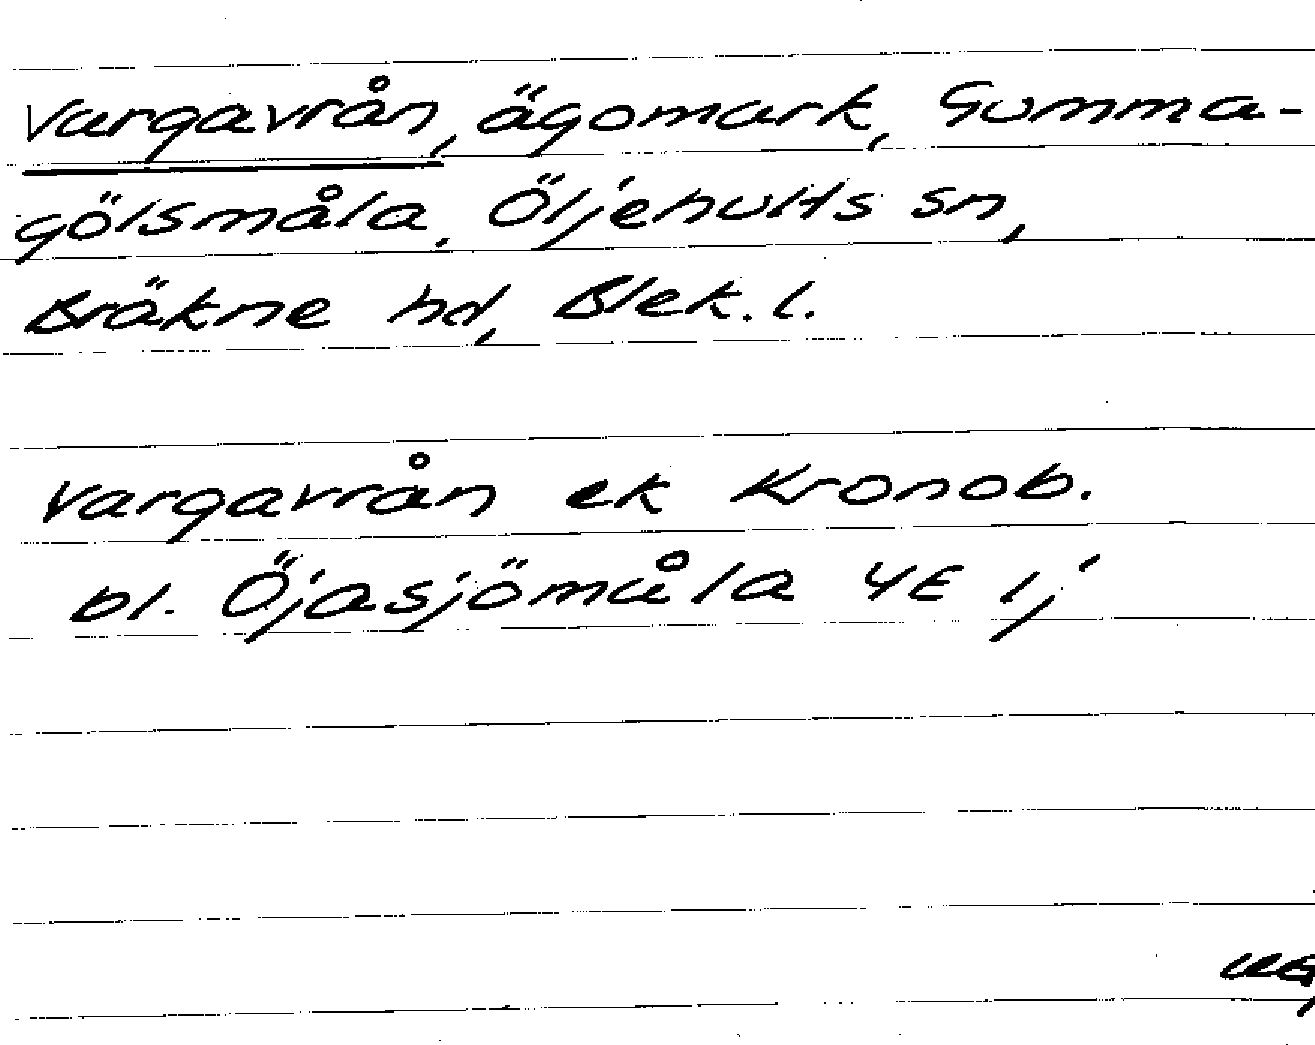 Vargavrån, ägomark, Gumma-
gölsmåla, Öljehults sn,
Bräkne hd, Blek. l.
Vargavrån ek Kronob.
bl. Öjasjömåla 4E 1j